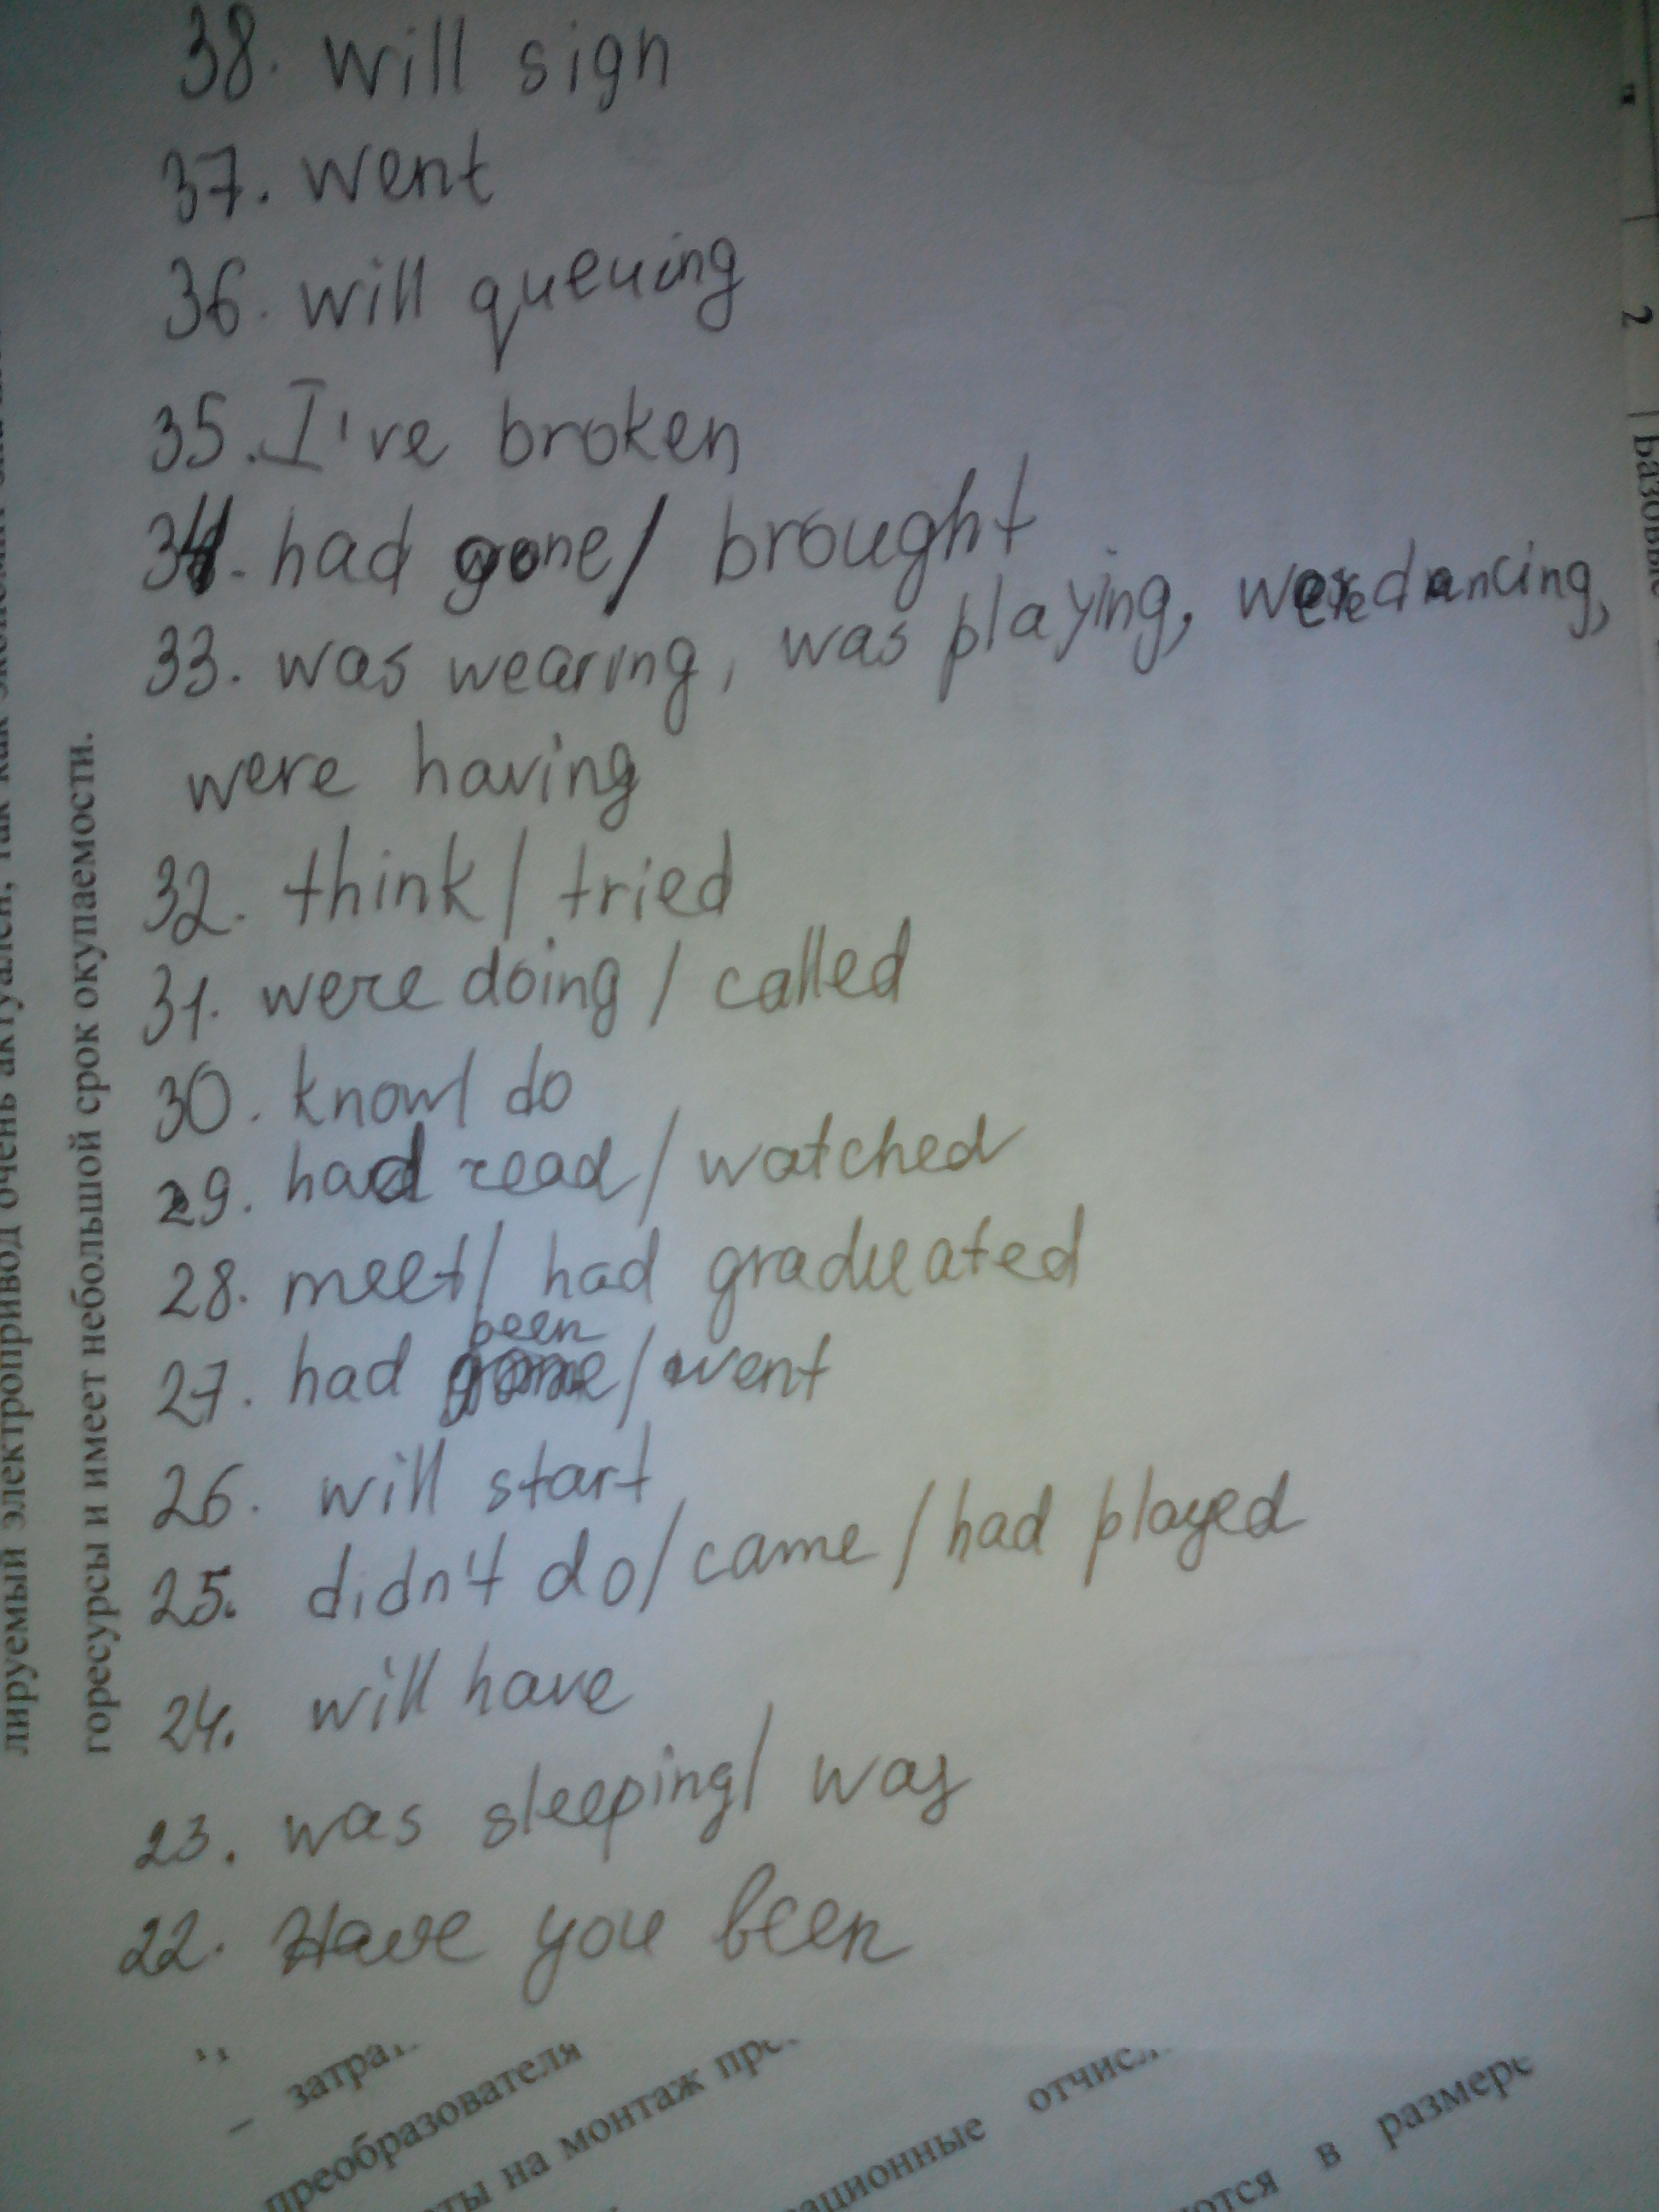 38. will sign
37. went
36. will queuing
35. I've broken
34. had gone/ brought
33. was wearing, was playing, were dancing,
were having
32. think/ tried
31. were doing/ called
30. know/ do
29. had read/ watched
28. meet/ had graduated
27. had been/ went
26. will start
25. didn't do/ came/ had played
24. will have
23. was sleeping/ was
22. Have you been
горесурсы и имеет небольшой срок окупаемости.
лируемый электропривод очень актуален, так как
2
– 
преобразователя
на монтаж
отчис
в размере